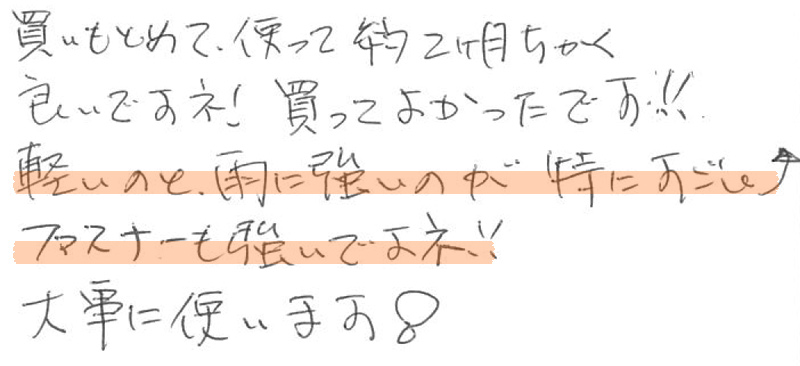 買いもとめて、使って約2ヶ月ちかく
良いですネ! 買ってよかったです!!
軽いのと、雨に強いのが 特にすごい↑
ファスナーも強いですネ!!
大事に使います